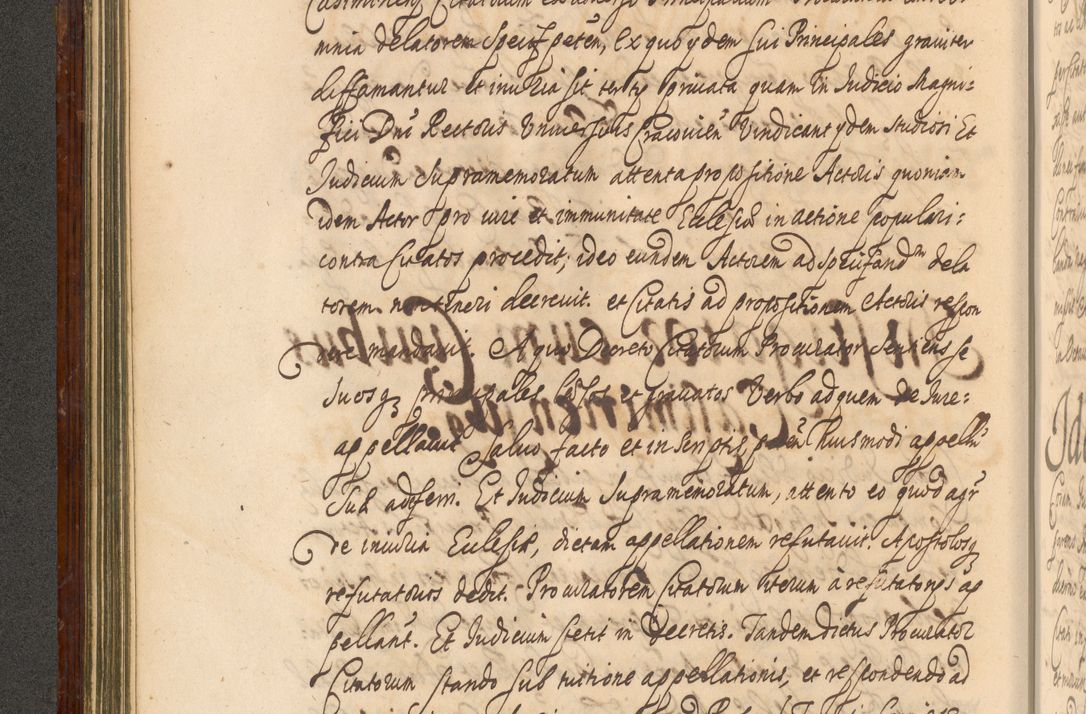 mnia delatorem specif peten, Ex quo ydem sui Principales graviter
diffamantur et iniuria sit tertys privata quam in Judicio Magni:
fici Dni Rectoris Universitatis Cracovien Vindicant ydem Studiosi Et
Judicium Supramemoratum attenta propositione Actoris quoniam
idem Actor pro iure et immunitate Ecclesiæ in actione populari:
contra Citatos procedit, ideo eundem Actorem ad specificand dela
torem non teneri decrevit. et Citatis ad propositionem Actoris respon
dere mandavit. A quo Decreto Citatorum Procurator Sentiens se
suosq principales læsos et gravatos Verbo ad quem de Jure:
appellavit Salvo facto et in Scriptis, peten huiusmodi appelln
Sibi adferri. Et Judicium Supramemoratum, attento eo quod agr
de iniuria Ecclesiæ, dictam appellationem refutavit. Apostolosq
refutatorios dedit. Procuratorem Citatorum iterum à refutatorys ap
pellant. Et Judicium stetit in Decretis. Tandem dictus Procurator
Citatorum stando sub tuitione appellationis, et respondendo ad